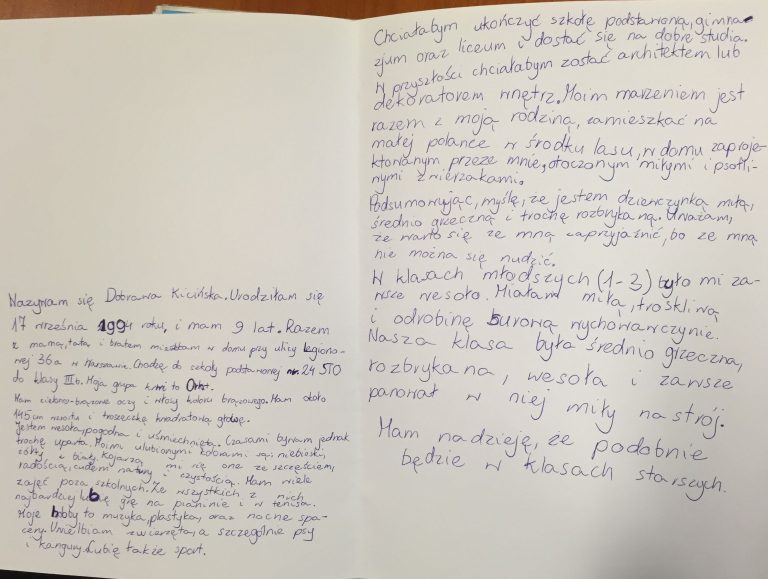 Nazywam się Dobrawa Kicińska. Urodziłam się
17 września 1994 roku, i mam 9 lat. Razem
z mamą, tatą i bratem mieszkam w domu przy ulicy Legiono-
wej 36a w Warszawie. Chodzę do szkoły podstawowej nr. 24 STO
do klasy III b. Moja grupa krwi to 0rh+.
Mam zielono-brązowe oczy i włosy koloru brązowego. Mam około
145 cm wzrostu i troszeczkę kwadratową głowę.
Jestem wesoła, pogodna i uśmiechnięta. Czasami bywam jednak
trochę uparta. Moimi ulubionymi kolorami są: niebieski,
żółty, i biały. Kojarzą mi się one ze szczęściem,
radością, cudem natury i czystością. Mam wiele
zajęć poza szkolnych. Ze wszystkich z nich
najbardziej lubię grę na pianinie i w tenisa.
Moje hobby to muzyka, plastyka, oraz nocne spa-
cery. Uwielbiam zwierzęta, a szczególnie psy
i kangury. Lubię także sport.
Chciałabym ukończyć szkołę podstawową, gimna-
zjum oraz liceum i dostać się na dobre studia.
W przyszłości chciałabym zostać architektem lub
dekoratorem wnętrz. Moim marzeniem jest
razem z moją rodziną, zamieszkać na
małej polance w środku lasu, w domu zaproje-
ktowanym przeze mnie, otoczonym miłymi i psotli-
nymi zwierzakami.
Podsumowując, myślę, że jestem dziewczynką miłą,
średnio grzeczną i trochę rozbrykaną. Uważam,
że warto się ze mną zaprzyjaźnić, bo ze mną
nie można się nudzić.
W klasach młodszych (1-3) było mi za-
wsze wesoło. Miałam miłą, troskliwą
i odrobinę surową wychowawczynie.
Nasza klasa była średnio grzeczna,
rozbrykana, wesoła i zawsze
panował w niej miły nastrój.
Mam nadzieję, że podobnie
będzie w klasach starszych.